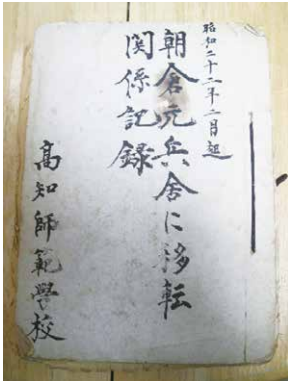 昭和二十二年二月起
朝倉元兵舎に移転
関係記録
高知師範學校